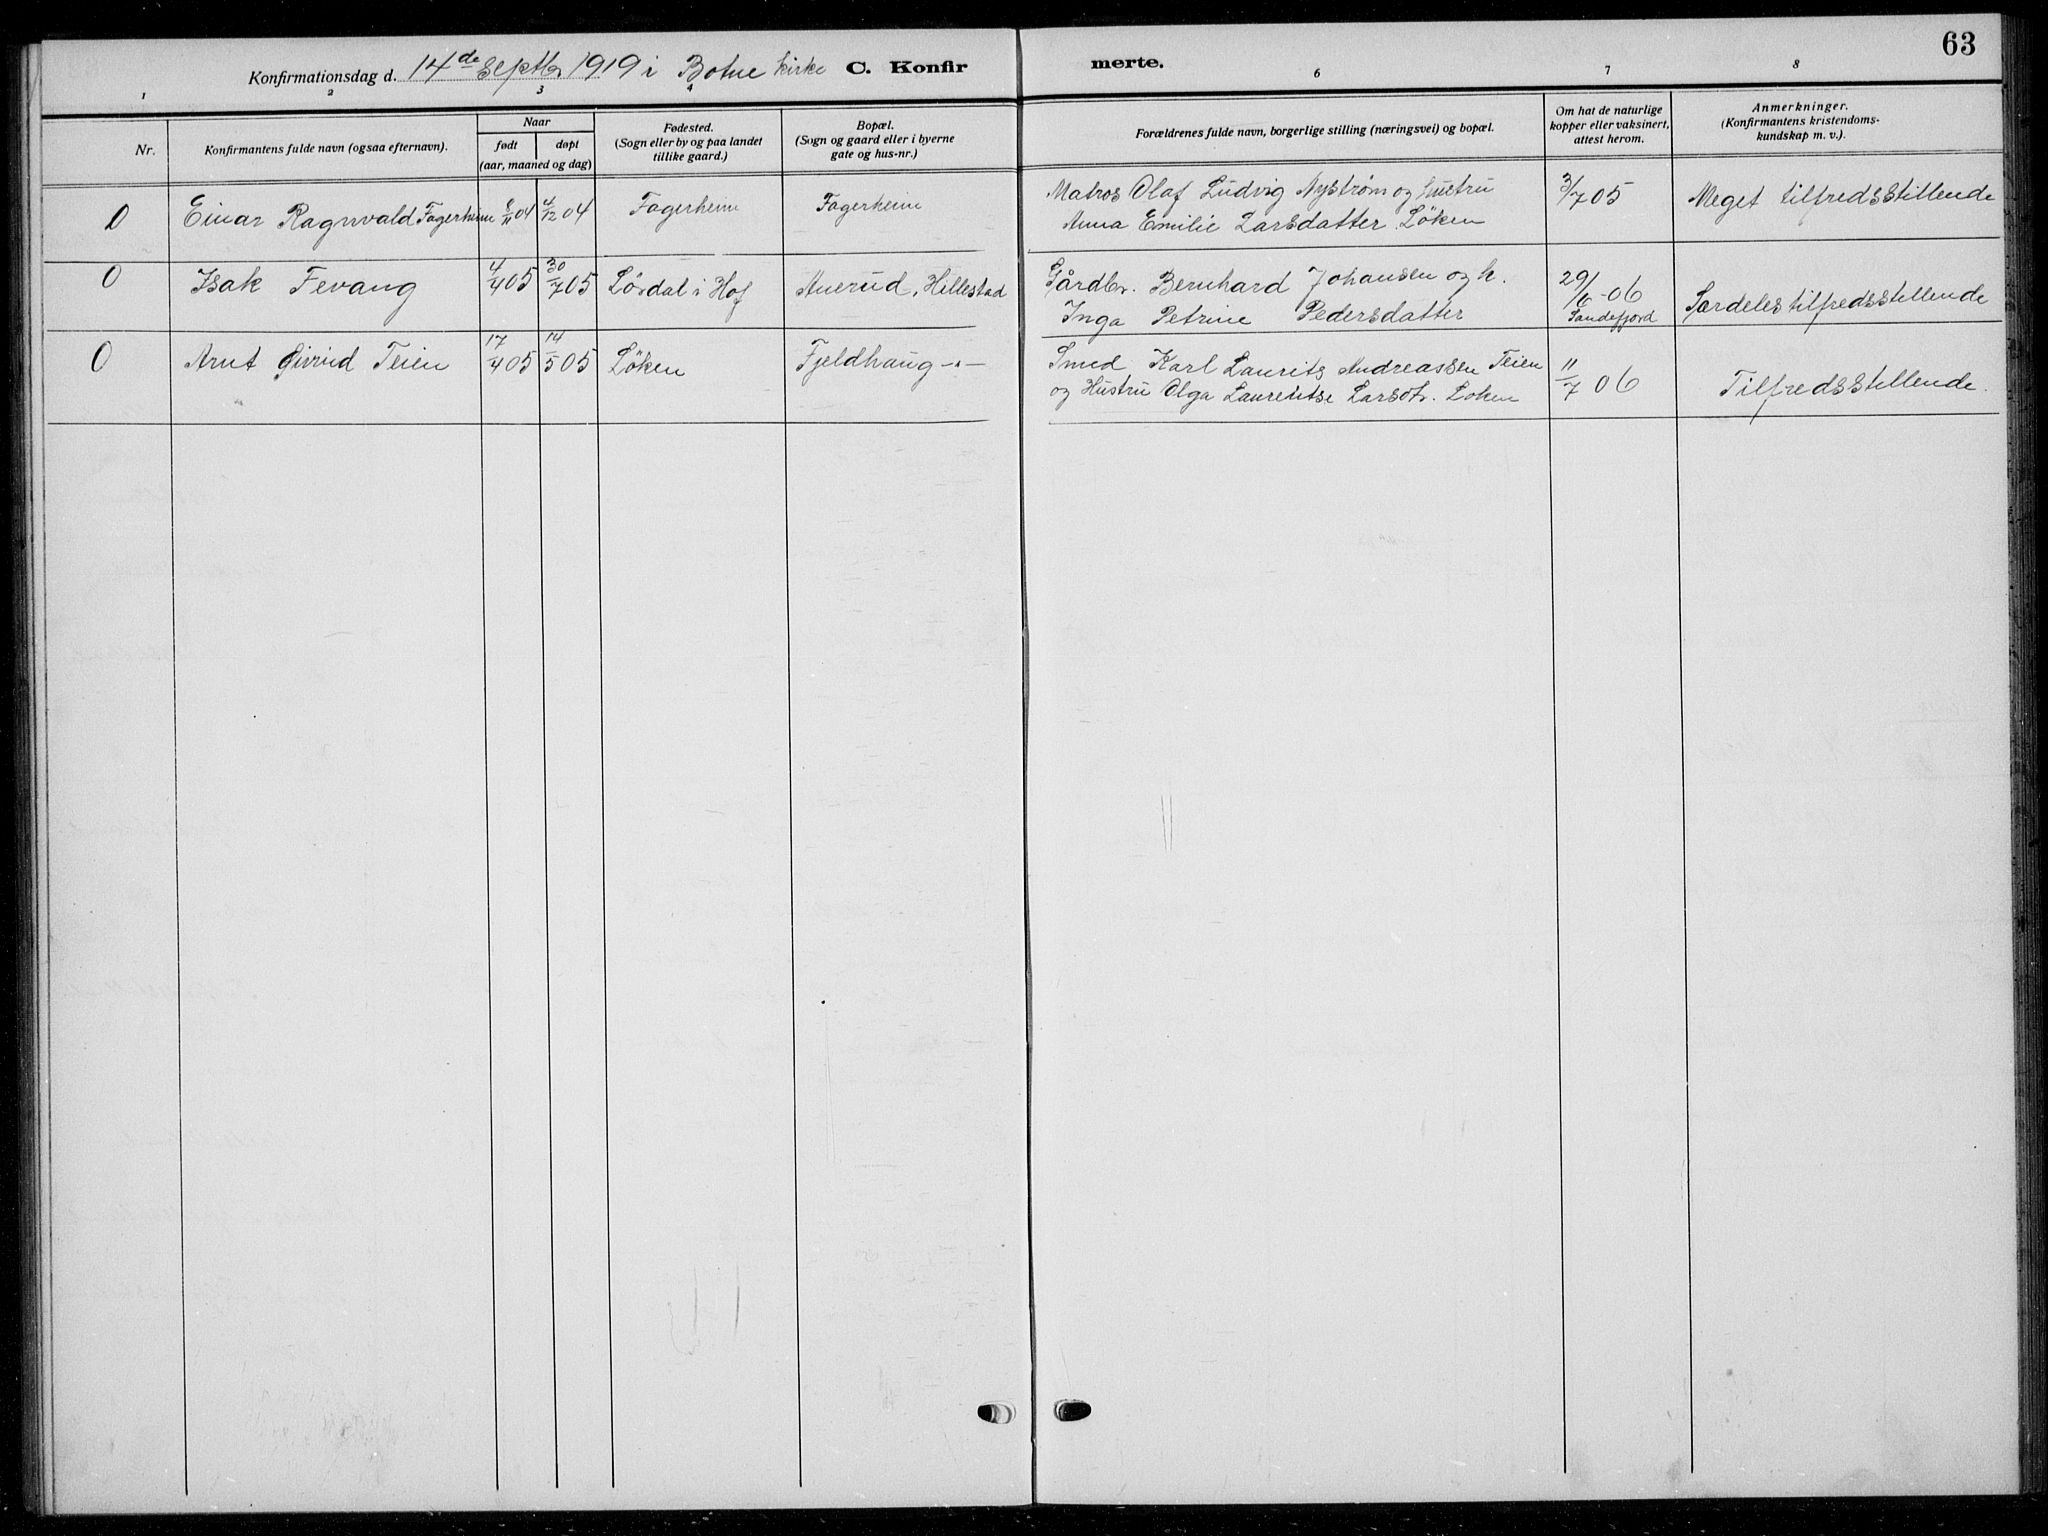 63
Konfirmationsdag d. 14de Septbr 1919 i Botne kirke C. Konfirmerte.
1 2 3 4 6 7 8
Nr.
Konfirmantens fulde navn (ogsaa efternavn).
Naar
født døpt
(aar, maaned og dag)
Fødested.
(Sogn eller by og paa landet
tillike gaard.)
Bopæl.
(Sogn og gaard eller i byerne
gate og hus-nr.)
Forældrenes fulde navn, borgerlige stilling (næringsvei) og bopæl.
Om hat de naturlige
kopper eller vaksinert,
attest herom.
Anmerkninger.
(Konfirmantens kristendoms-
kundskap m. v.).
0 Einar Ragnvald Fagerheim 8/11 04 4/12 04 Fagerheim Fagerheim Matros Olaf Ludvig Nystrøm og hustru 3/7 05 Meget tilfredsstillende
Anna Emilie Larsdatter Løken
0 Isak Fevang 4/4 05 30/7 05 Løsdal i Hof Auerud, Hillestad Gårdbr. Bernhard Johansen og h. 29/6-06 Særdeles tilfredsstillende
Inga Petrine Pedersdatter Sandefjord
0 Arnt Øivind Teien 17/4 05 14/5 05 Løken Fjeldhaug -"- Smed Karl Laurits Andreassen Teien 11/7 06 Tilfredsstillende.
og Hustru Olga Lauretitse Larsdt. Løken